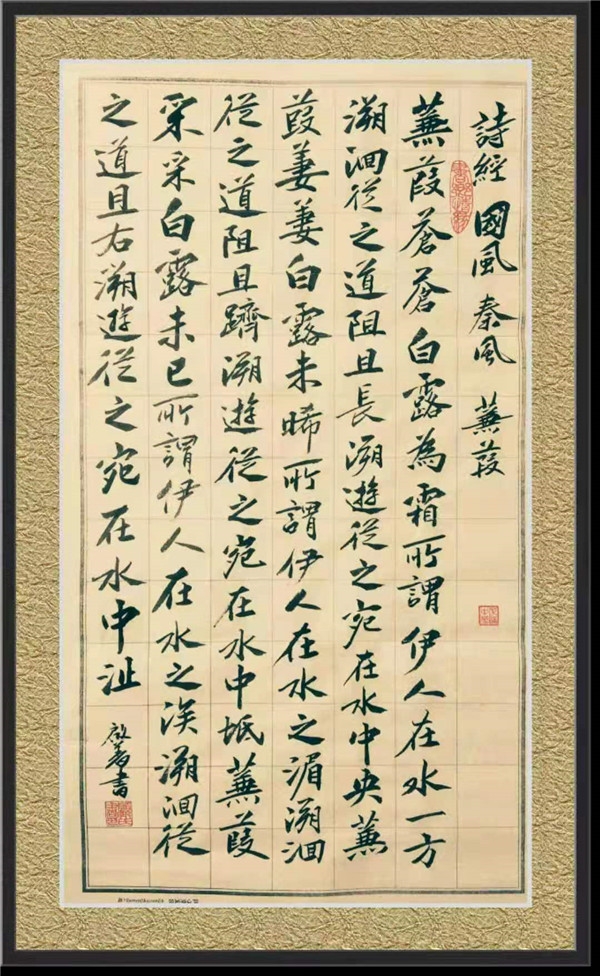 詩經 國風 秦風 蒹葭
蒹葭蒼蒼白露為霜所謂伊人在水一方
溯洄從之道阻且長溯遊從之宛在水中央蒹
葭萋萋白露未晞所謂伊人在水之湄溯洄
從之道阻且躋溯遊從之宛在水中坻蒹葭
采采白露未已所謂伊人在水之涘溯洄從
之道且右溯遊從之宛在水中沚
書